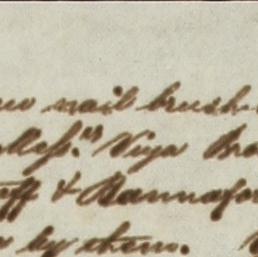 nail brush
Mess.rs Viya Bro
ff & Bannafo
by them.